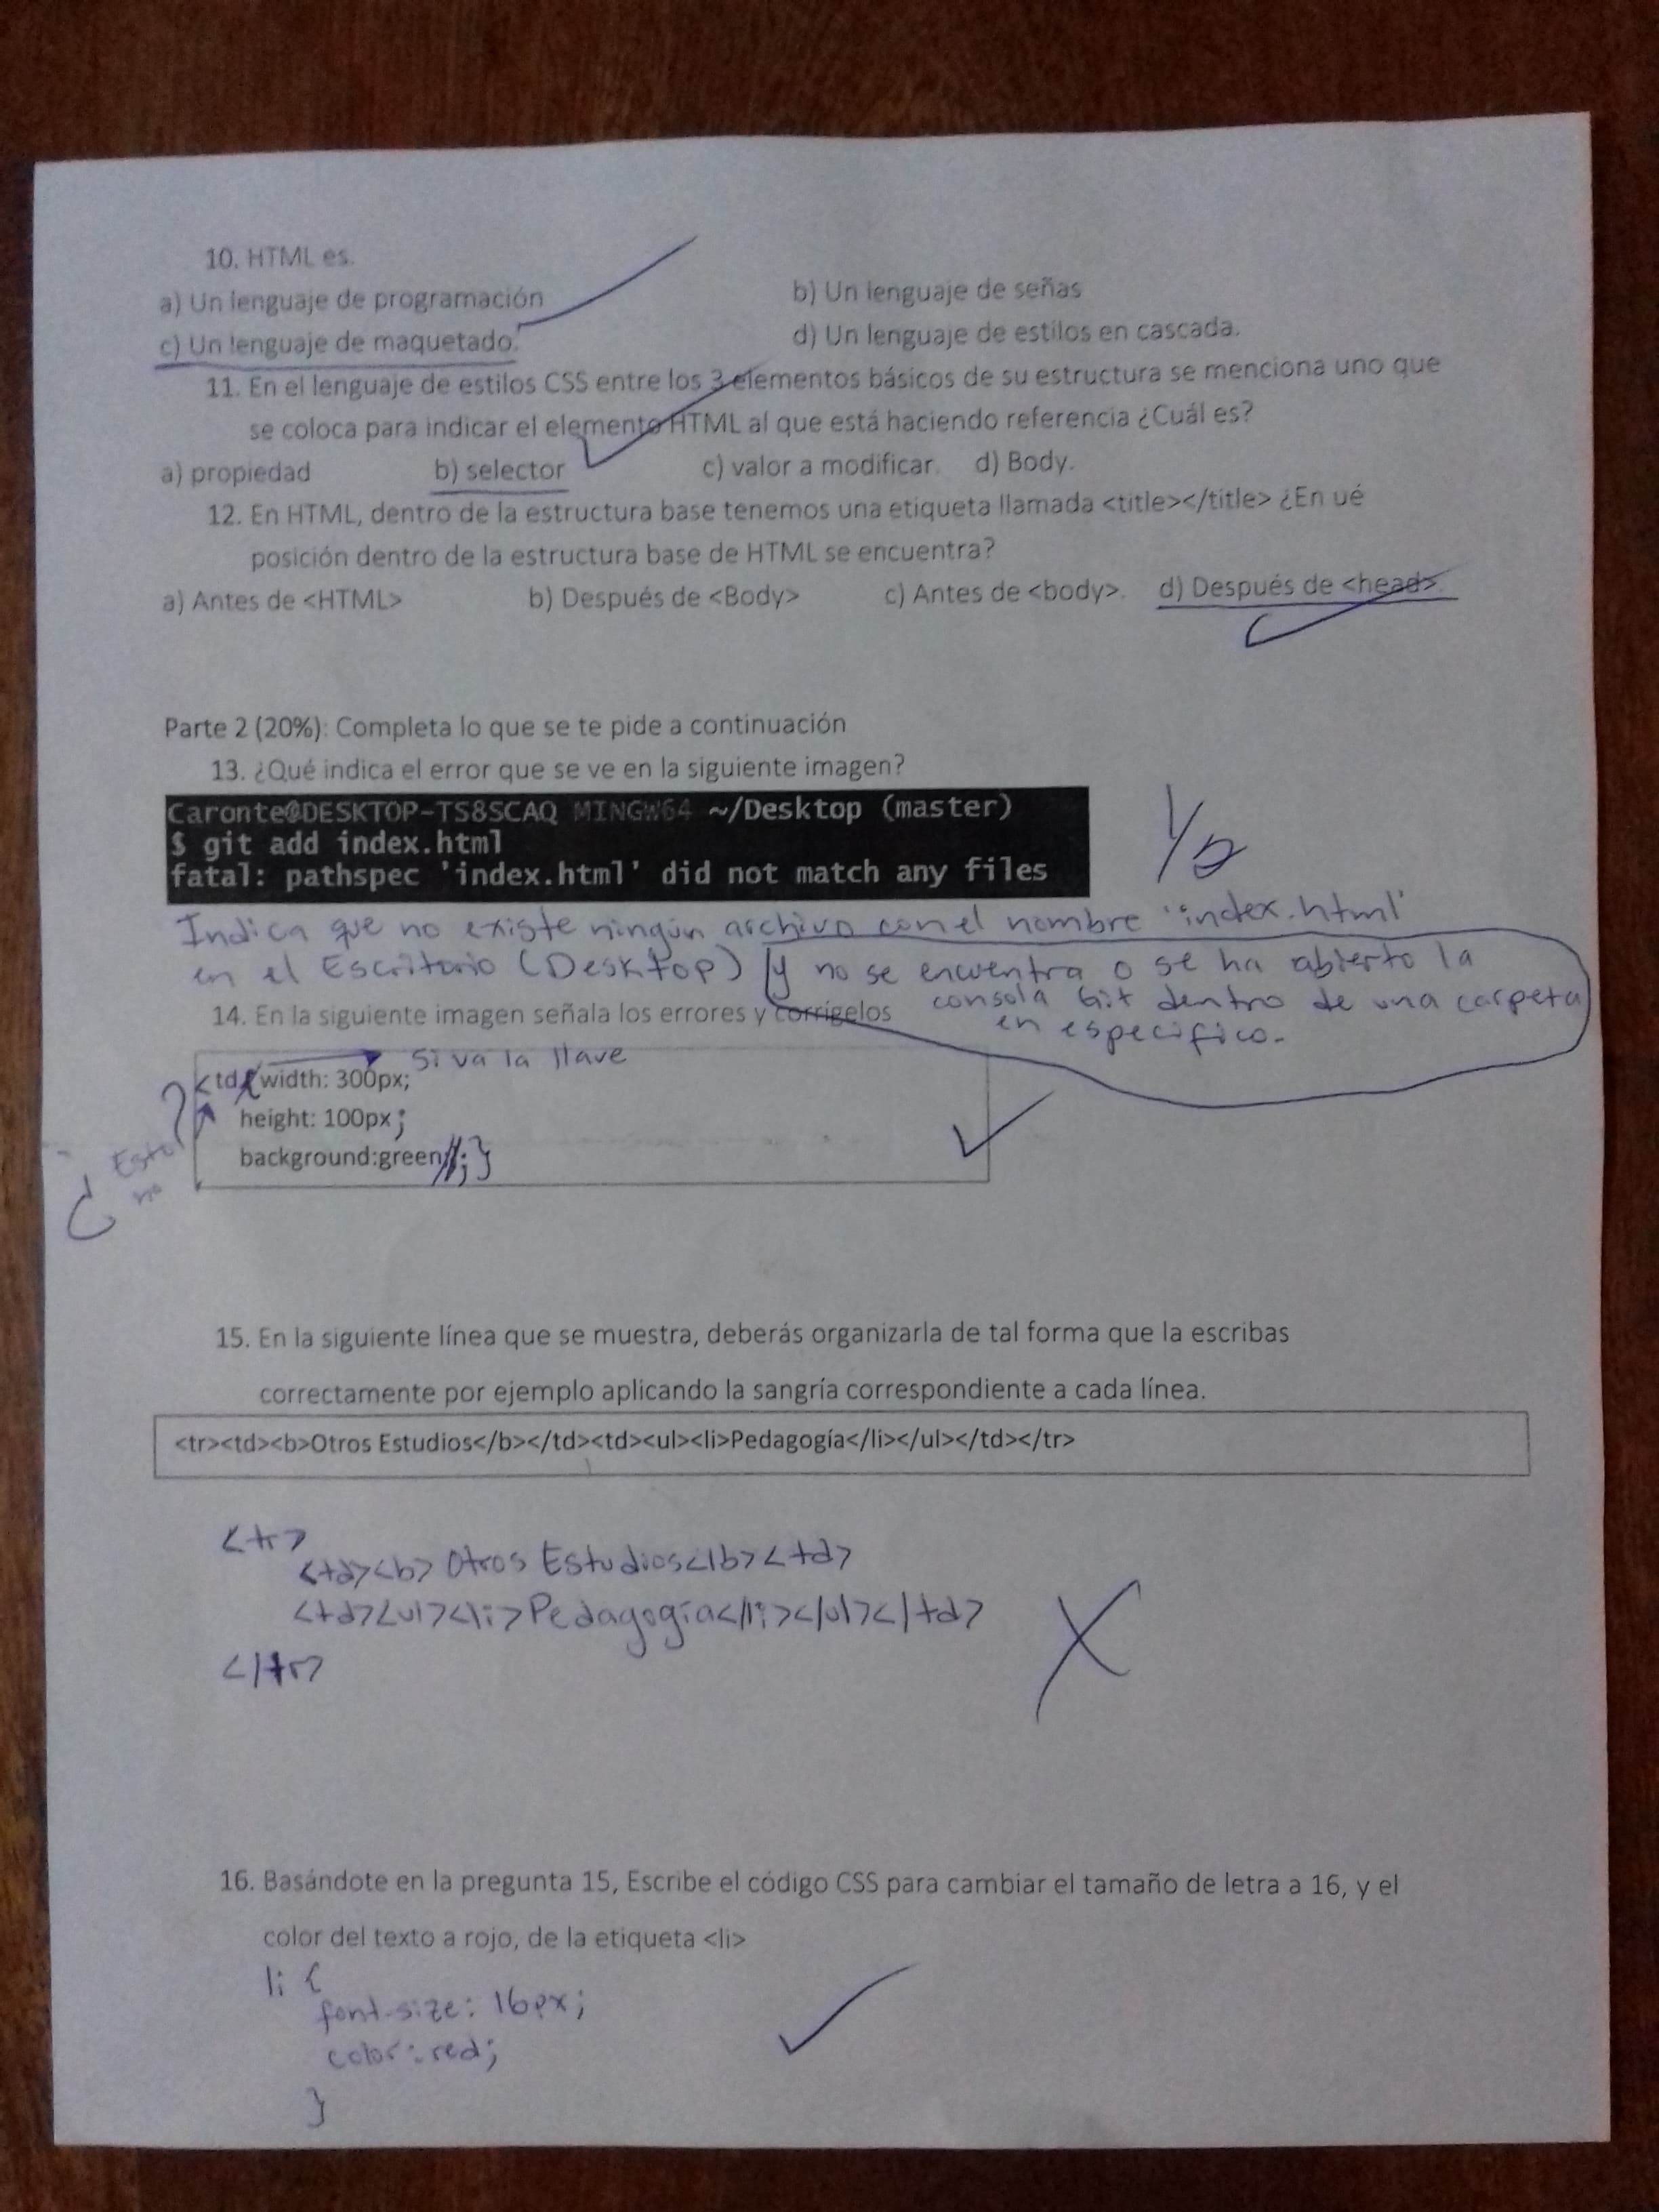 10. HTML es.
a) Un lenguaje de programación
b) Un lenguaje de señas
c) Un lenguaje de maquetado.
d) Un lenguaje de estilos en cascada.
11. En el lenguaje de estilos CSS entre los 3 elementos básicos de su estructura se menciona uno que
se coloca para indicar el elemento HTML al que está haciendo referencia ¿Cuál es?
a) propiedad b) selector c) valor a modificar. d) Body.
12. En HTML, dentro de la estructura base tenemos una etiqueta llamada <title></title> ¿En ué
posición dentro de la estructura base de HTML se encuentra?
a) Antes de <HTML> b) Después de <Body> c) Antes de <body>. d) Después de <head>.
Parte 2 (20%): Completa lo que se te pide a continuación
13. ¿Qué indica el error que se ve en la siguiente imagen?
Caronte@DESKTOP-TS8SCAQ MINGW64 ~/Desktop (master)
$ git add index.html
fatal: pathspec 'index.html' did not match any files
1/2
Indica que no existe ningún archivo con el nombre 'index.html'
en el Escritorio (Desktop) y no se encuentra o se ha abierto la
consola Git dentro de una carpeta
en específico.
14. En la siguiente imagen señala los errores y corrígelos
Si va la llave
<td{width: 300px;
height: 100px;
background:green;}
¿Esto no?
15. En la siguiente línea que se muestra, deberás organizarla de tal forma que la escribas
correctamente por ejemplo aplicando la sangría correspondiente a cada línea.
<tr><td><b>Otros Estudios</b></td><td><ul><li>Pedagogía</li></ul></td></tr>
<tr>
<td><b>Otros Estudios</b><td>
<td><ul><li>Pedagogía</li></ul></td>
</tr>
16. Basándote en la pregunta 15, Escribe el código CSS para cambiar el tamaño de letra a 16, y el
color del texto a rojo, de la etiqueta <li>
li {
font-size: 16px;
color: red;
}